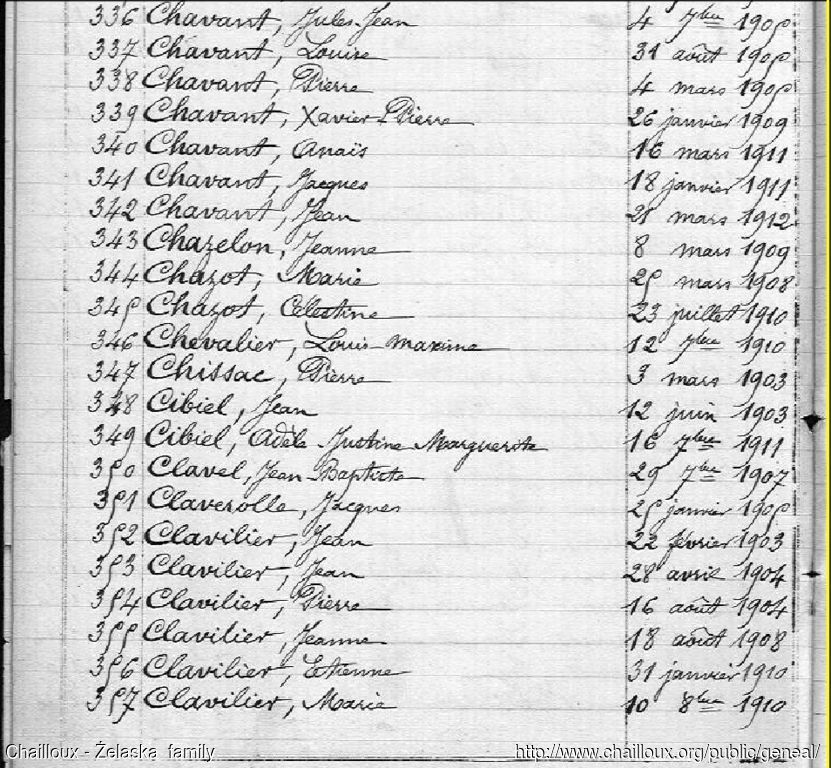 336 Chavant, Jules Jean 4 7bre 1905
337 Chavant, Louise 31 août 1905
338 Chavant, Pierre 4 mars 1905
339 Chavant, Xavier Pierre 26 janvier 1909
340 Chavant, Anaïs 16 mars 1911
341 Chavant, Jacques 18 janvier 1911
342 Chavant, Jean 21 mars 1912
343 Chazelon, Jeanne 8 mars 1909
344 Chazot, Marie 25 mars 1908
345 Chazot, Célestine 23 juillet 1910
346 Chevalier, Louis maxime 12 7bre 1910
347 Chissac, Pierre 3 mars 1903
348 Cibiel, Jean 12 juin 1903
349 Cibiel, Adèle Justine Marguerite 16 7bre 1911
350 Clavel, Jean Baptiste 29 7bre 1907
351 Claverolle, Jacques 25 janvier 1905
352 Clavilier, Jean 22 février 1903
353 Clavilier, Jean 28 avril 1904
354 Clavilier, Pierre 16 août 1904
355 Clavilier, Jeanne 18 août 1908
356 Clavilier, Etienne 31 janvier 1910
357 Clavilier, Marie 10 8bre 1910
Chailloux - Żelaska family http://www.chailloux.org/public/geneal/